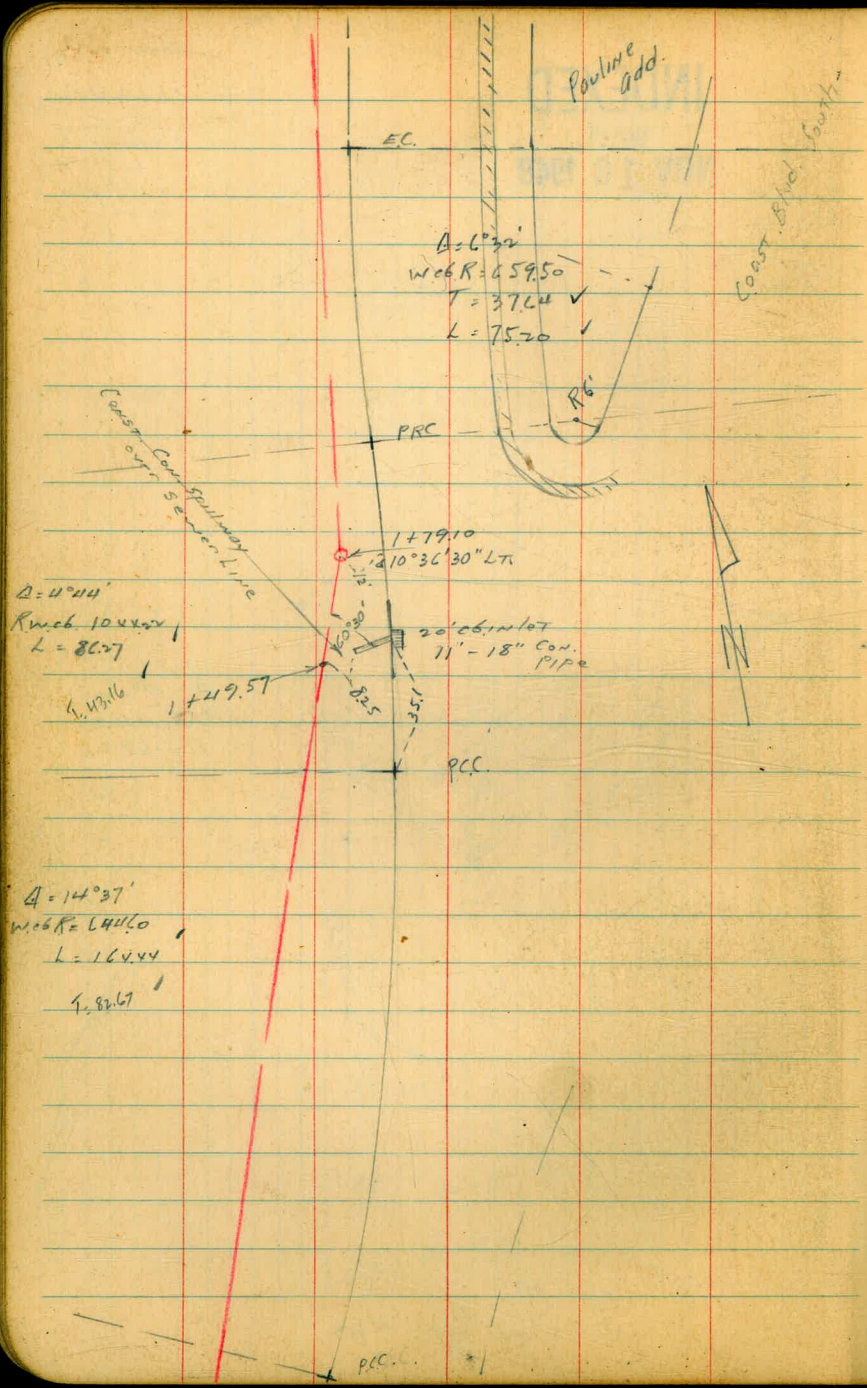 Pauline
add.
Coast Blvd. South
E.C.
Δ = 6°32'
W cb R = 659.50
T = 37.64 ✓
L = 75.20 ✓
R6'
PRC
Const. Con. Spillway
over Sewer Line
1+79.10
∠10°36'30" LT
12'
Δ = 4°44'
R w cb 1044.22
L = 86.27
T. 43.16
60°30'
20' cb inlet
11' - 18" Con.
Pipe
1+49.57
8.25
35.1
N
P.C.C.
Δ = 14°37'
W. cb R = 644.60
L = 164.44
T. 82.67
P.C.C.